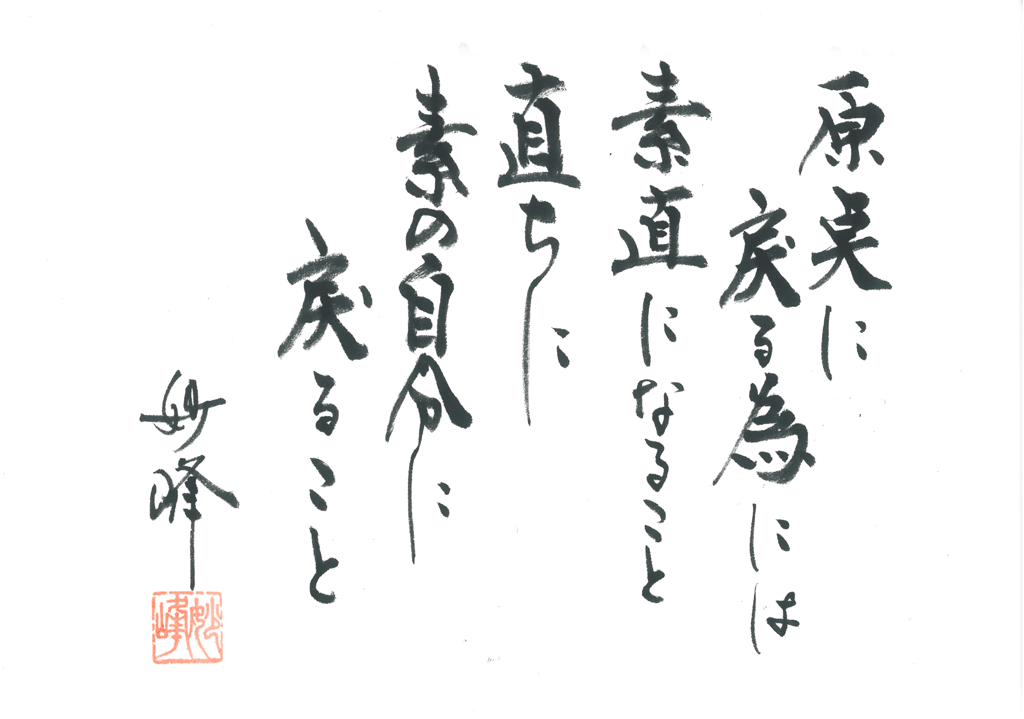 原点に
戻る為には
素直になること
直ちに
素の自分に
戻ること
妙峰
妙峰